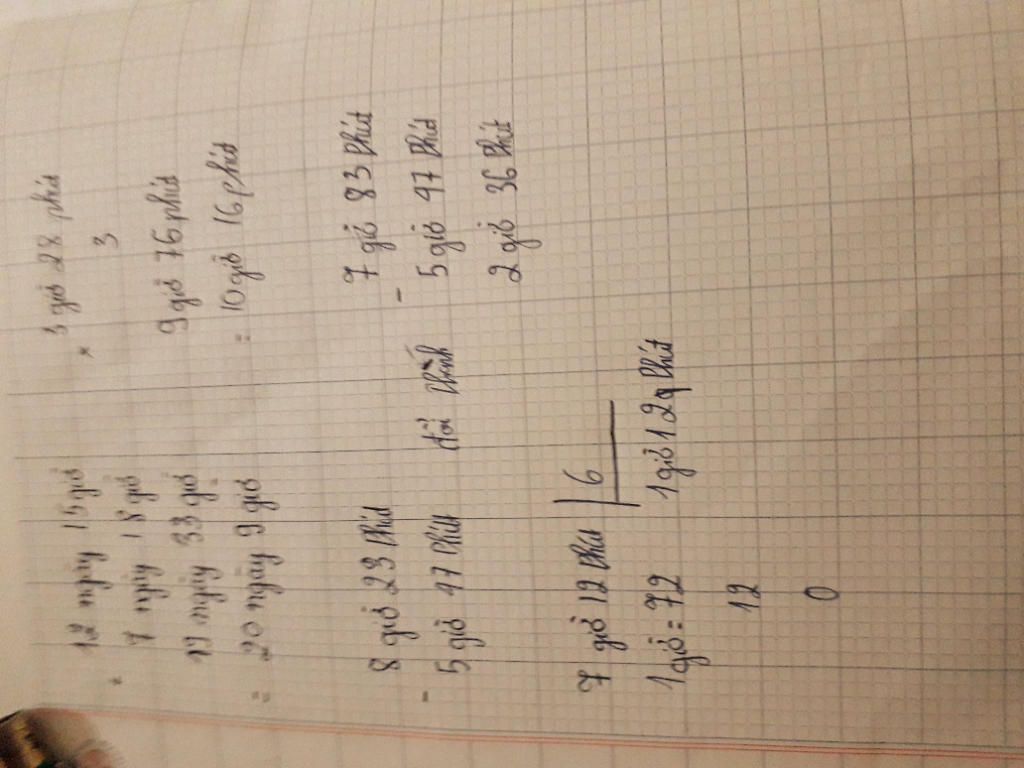 12 ngày 15 giờ
+
7 ngày 18 giờ
19 ngày 33 giờ
= 20 ngày 9 giờ
3 giờ 28 phút
×
3
9 giờ 76 phút
= 10 giờ 16 phút
8 giờ 23 Phút
-
5 giờ 47 Phút
đổi thành
7 giờ 83 Phút
-
5 giờ 47 Phút
2 giờ 36 Phút
7 giờ 12 Phút 6
1 giờ = 72 1 giờ 12 Phút
12
0